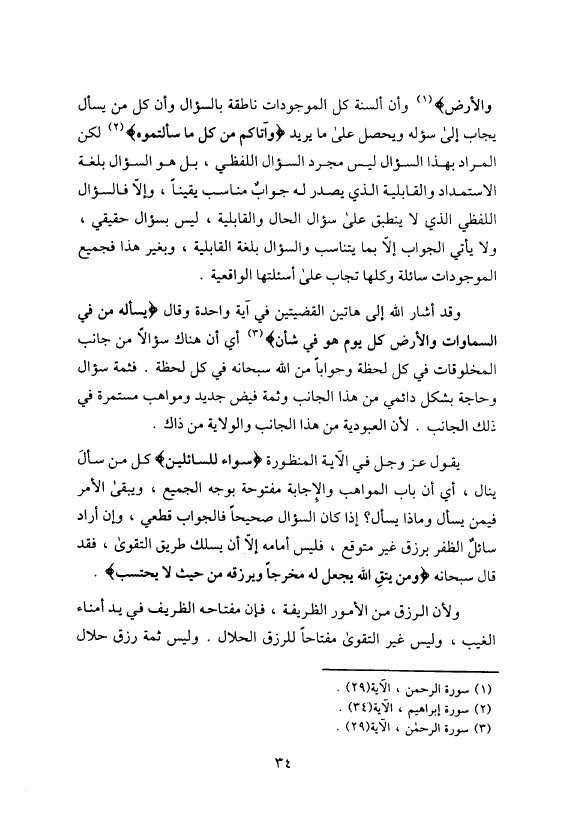 والأرض﴾(١) وأن ألسنة كل الموجودات ناطقة بالسؤال وأن كل من يسأل
يجاب إلىٰ سؤله ويحصل علىٰ ما يريد ﴿وآتاكم من كل ما سألتموه﴾(٢) لكن
المراد بهذا السؤال ليس مجرد السؤال اللفظي ، بل هو السؤال بلغة
الاستمداد والقابلية الذي يصدر له جوابٌ مناسب يقيناً ، وإلاّ فالسؤال
اللفظي الذي لا ينطبق علىٰ سؤال الحال والقابلية ، ليس بسؤال حقيقي ،
ولا يأتي الجواب إلاّ بما يتناسب والسؤال بلغة القابلية ، وبغير هذا فجميع
الموجودات سائلة وكلها تجاب علىٰ أسئلتها الواقعية .
وقد أشار الله إلى هاتين القضيتين في آية واحدة وقال ﴿يسأله من في
السماوات والأرض كل يوم هو في شأن﴾(٣) أي أن هناك سؤالاً من جانب
المخلوقات في كل لحظة وجواباً من الله سبحانه في كل لحظة . فثمة سؤال
وحاجة بشكل دائمي من هذا الجانب وثمة فيض جديد ومواهب مستمرة في
ذلك الجانب . لأن العبودية من هذا الجانب والولاية من ذاك .
يقول عز وجل في الآية المنظورة ﴿سواء للسائلين﴾ كل من سألَ
ينال ، أي أن باب المواهب والإجابة مفتوحة بوجه الجميع ، ويبقىٰ الأمر
فيمن يسأل وماذا يسأل؟ إذا كان السؤال صحيحاً فالجواب قطعي ، وإن أراد
سائلٌ الظفر برزق غير متوقع ، فليس أمامه إلاّ أن يسلك طريق التقوىٰ ، فقد
قال سبحانه ﴿ومن يتقِ الله يجعل له مخرجاً ويرزقه من حيث لا يحتسب﴾ .
ولأن الرزق من الأمور الظريفة ، فإن مفتاحه الظريف في يد أمناء
الغيب ، وليس غير التقوىٰ مفتاحاً للرزق الحلال . وليس ثمة رزق حلال
(١) سورة الرحمن ، الآية(٢٩) .
(٢) سورة إبراهيم ، الآية(٣٤) .
(٣) سورة الرحمٰن ، الآية(٢٩) .
٣٤